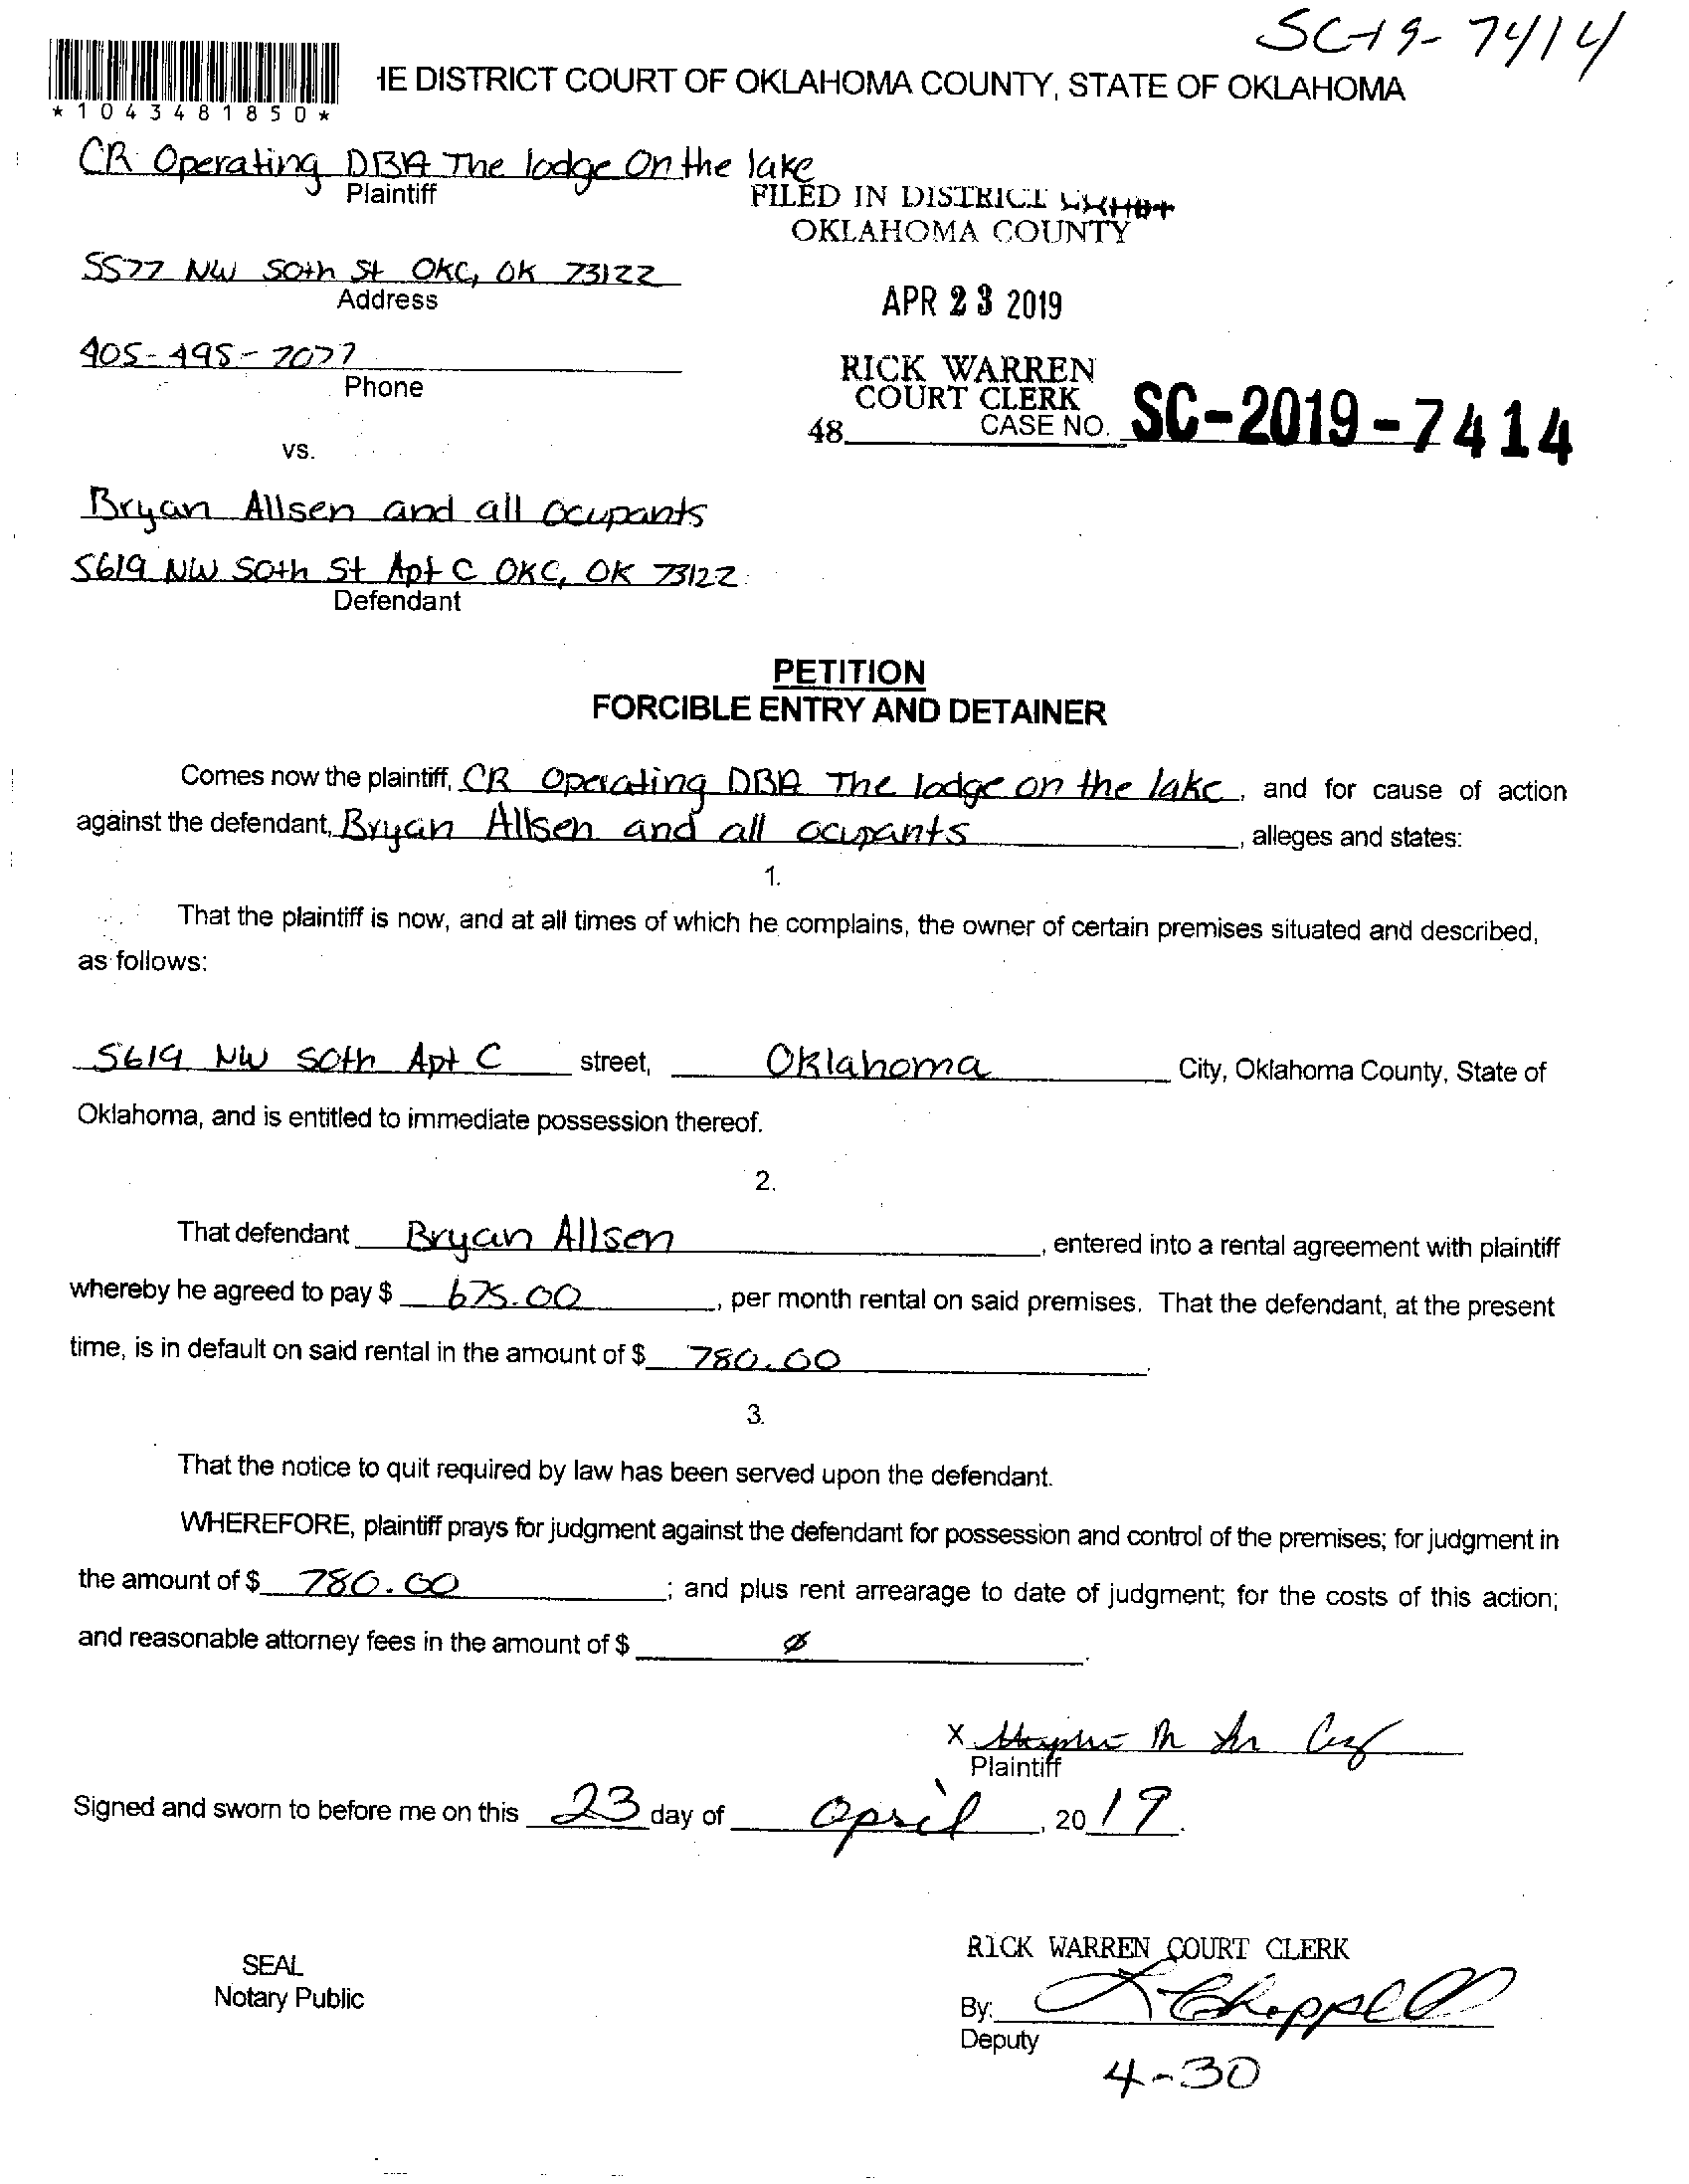 SC-19-7414
*1043481850*
HE DISTRICT COURT OF OKLAHOMA COUNTY, STATE OF OKLAHOMA
CR Operating DBA The lodge On the lake
Plaintiff
FILED IN DISTRICT
OKLAHOMA COUNTY
5577 NW 50th St OKC, OK 73122
Address
APR 23 2019
405-495-7077
Phone
RICK WARREN
COURT CLERK
48 CASE NO. SC-2019-7414
vs.
Bryan Allsen and all Ocupants
5619 NW 50th St Apt C OKC, OK 73122
Defendant
PETITION
FORCIBLE ENTRY AND DETAINER
Comes now the plaintiff, CR Operating DBA The lodge on the lake, and for cause of action
against the defendant, Bryan Allsen and all ocupants, alleges and states:
1.
That the plaintiff is now, and at all times of which he complains, the owner of certain premises situated and described,
as follows:
5619 NW 50th Apt C street, Oklahoma City, Oklahoma County, State of
Oklahoma, and is entitled to immediate possession thereof.
2.
That defendant Bryan Allsen, entered into a rental agreement with plaintiff
whereby he agreed to pay $ 675.00, per month rental on said premises. That the defendant, at the present
time, is in default on said rental in the amount of $ 780.00.
3.
That the notice to quit required by law has been served upon the defendant.
WHEREFORE, plaintiff prays for judgment against the defendant for possession and control of the premises; for judgment in
the amount of $ 780.00; and plus rent arrearage to date of judgment; for the costs of this action;
and reasonable attorney fees in the amount of $ Ø.
X
Plaintiff
Signed and sworn to before me on this 23 day of April, 2019.
RICK WARREN COURT CLERK
SEAL
Notary Public
By: Chappell
Deputy
4-30